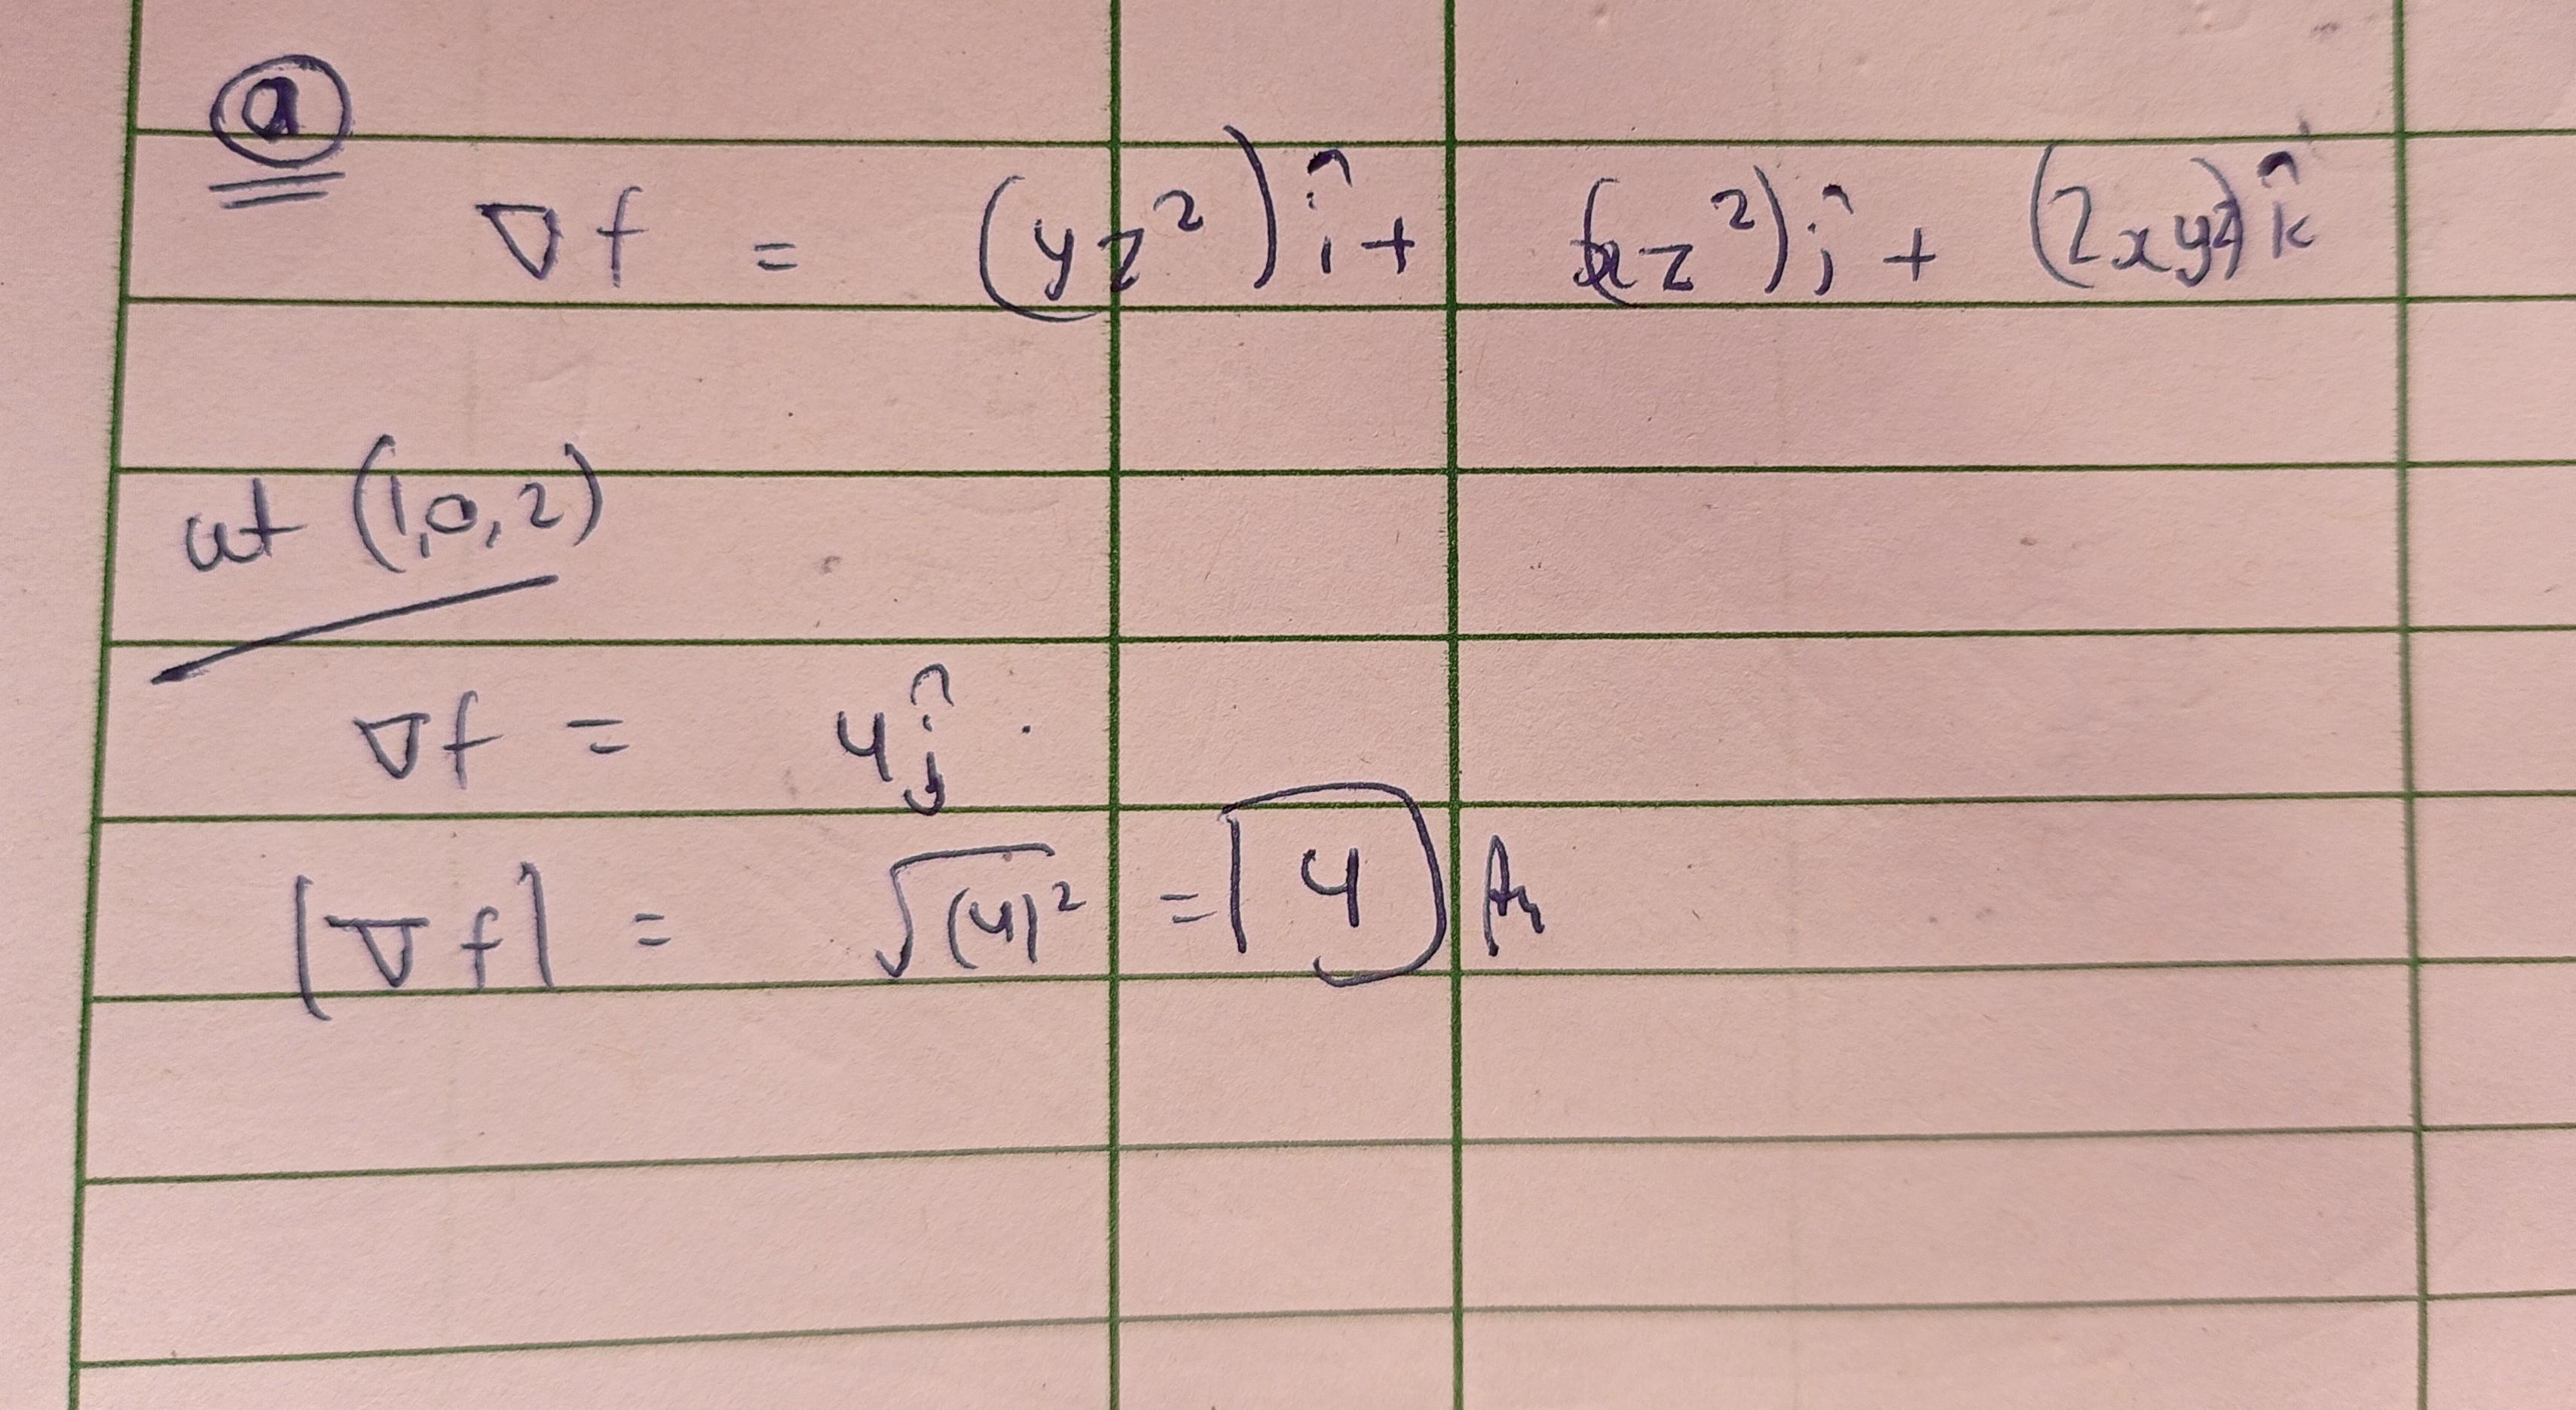 a
∇f = (yz²)î + (xz²)ĵ + (2xyz)k̂
at (1,0,2)
∇f = 4ĵ.
|∇f| = √(4)² = 4